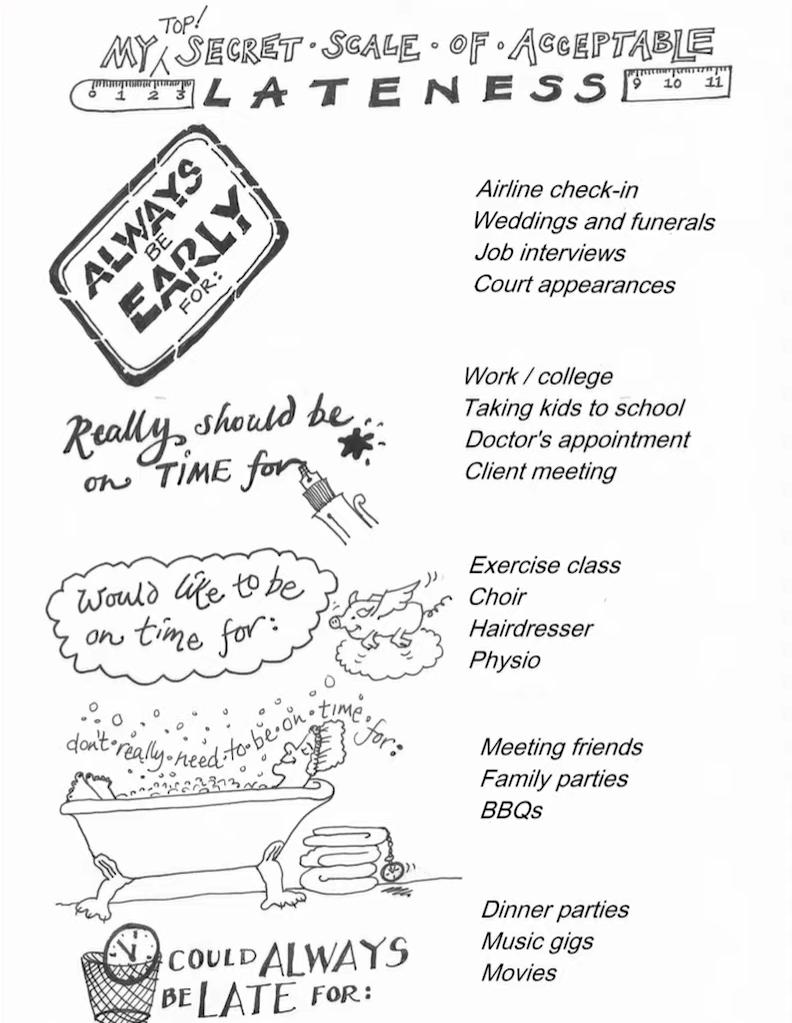 TOP!
MY SECRET · SCALE · OF · ACCEPTABLE
0 1 2 3 LATENESS 9 10 11
ALWAYS
BE
EARLY
FOR:
Airline check-in
Weddings and funerals
Job interviews
Court appearances
Really should be
on TIME for
Work / college
Taking kids to school
Doctor's appointment
Client meeting
Would like to be
on time for:
Exercise class
Choir
Hairdresser
Physio
don't·really·need·to·be·on·time·for:
Meeting friends
Family parties
BBQs
COULD ALWAYS
BE LATE FOR:
Dinner parties
Music gigs
Movies